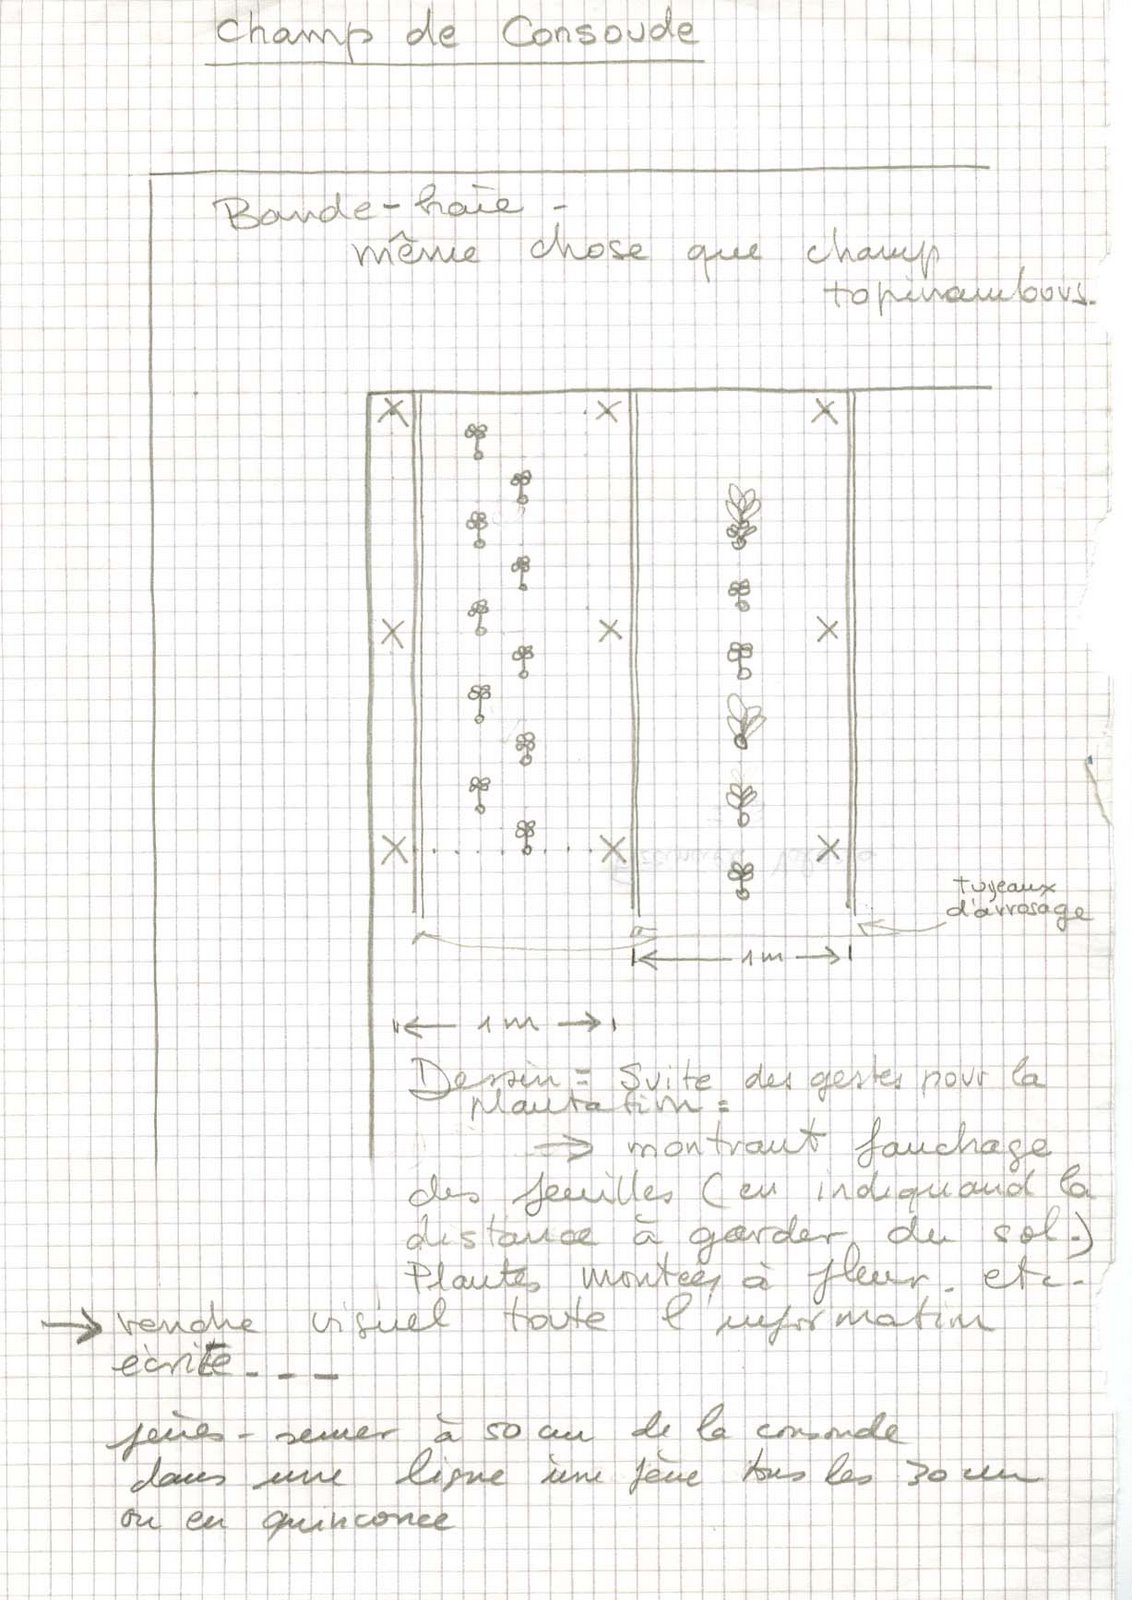 Champ de Consoude
Bande-haie -
même chose que champ
topinambours.
tuyeaux
d'arrosage
1m
1m
Dessin = Suite des gestes pour la
plantation =
→ montrant fauchage
des feuilles (en indiquand la
distance à garder du sol.)
Plantes montées à fleur. etc.
→ rendre visuel toute l'information
écrite - - -
fèves - semer à 50 cm de la consoude
dans une ligne une fève tous les 30 cm
ou en quinconce